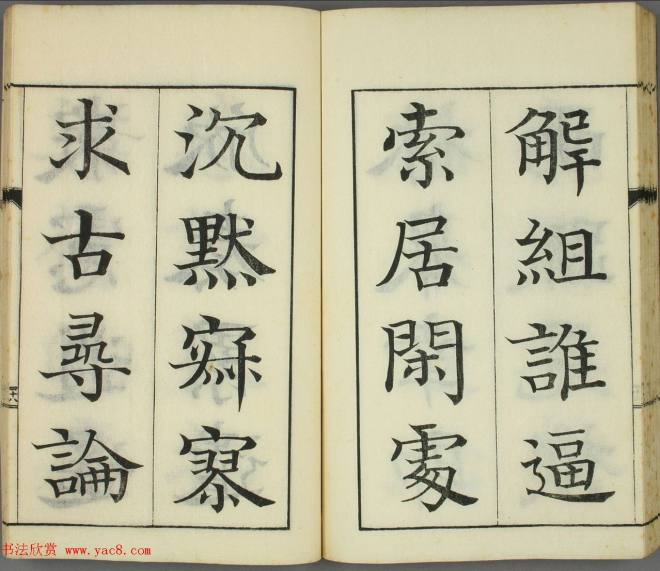 解組誰逼
索居閑處
沉默寂寥
求古尋論
十八
书法欣赏 www.yac8.com